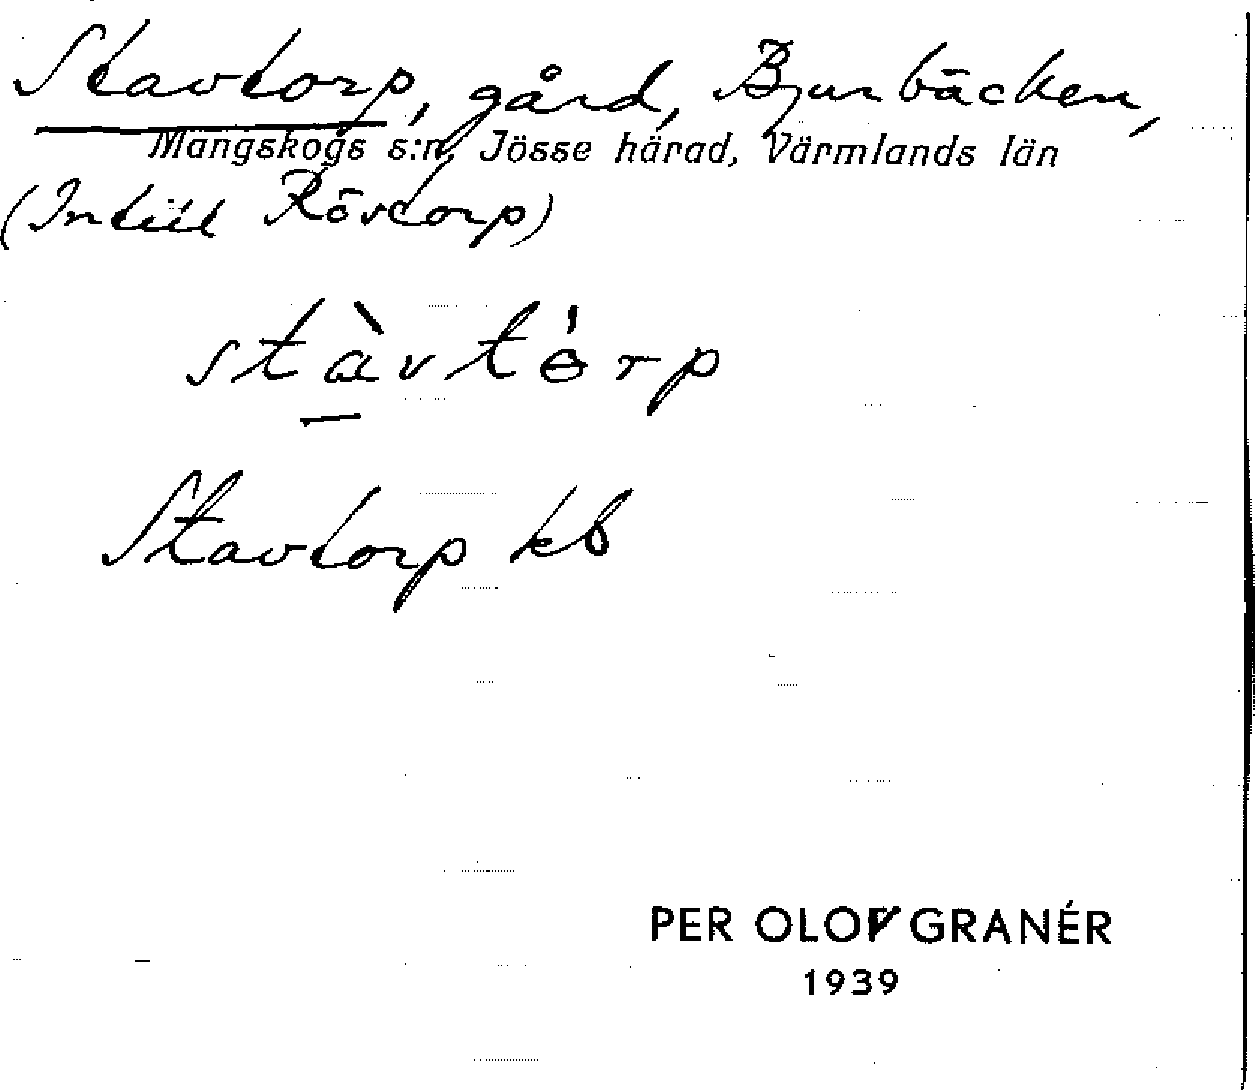 Stavtorp, gård, Bjurbäcken,
Mangskogs s:n, Jösse härad, Värmlands län
(Intill Rövtorp)
stàvtórp
Stavtorp kb
PER OLOV GRANÉR
1939